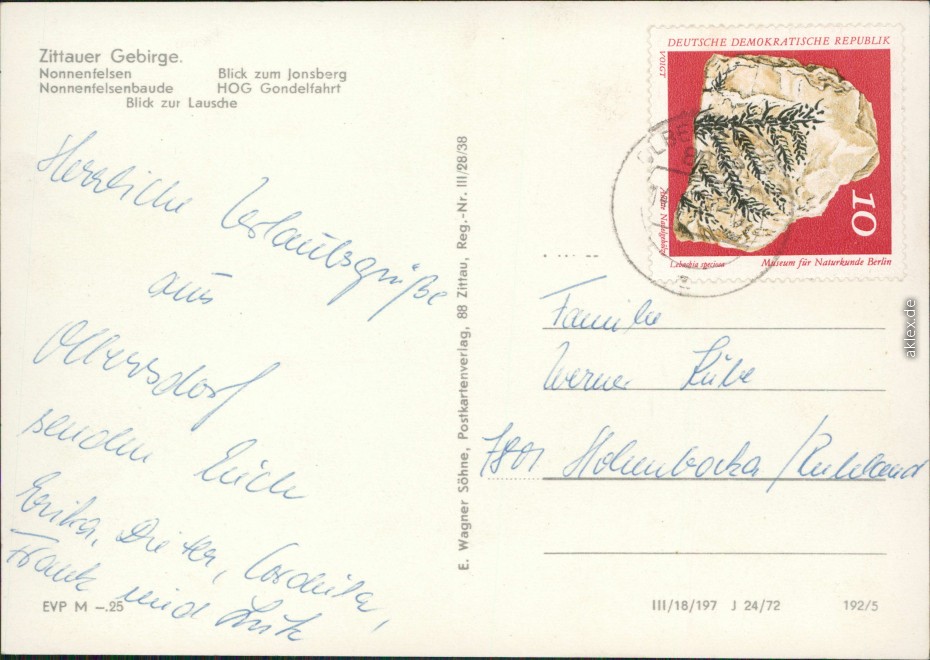 Zittauer Gebirge.
Nonnenfelsen Blick zum Jonsberg
Nonnenfelsenbaude HOG Gondelfahrt
Blick zur Lausche
Herzliche Urlaubsgrüße
aus
Olbersdorf
senden Euch
Erika, Dieter, Cordula,
Frank und
EVP M –.25
E. Wagner Söhne, Postkartenverlag, 88 Zittau, Reg.-Nr. III/28/38
DEUTSCHE DEMOKRATISCHE REPUBLIK
VOIGT
10
Lebachia speciosa
Museum für Naturkunde Berlin
Familie
Werner Kübe
7801 Hohenbocka / Ruhland
III/18/197 J 24/72 192/5
aklex.de